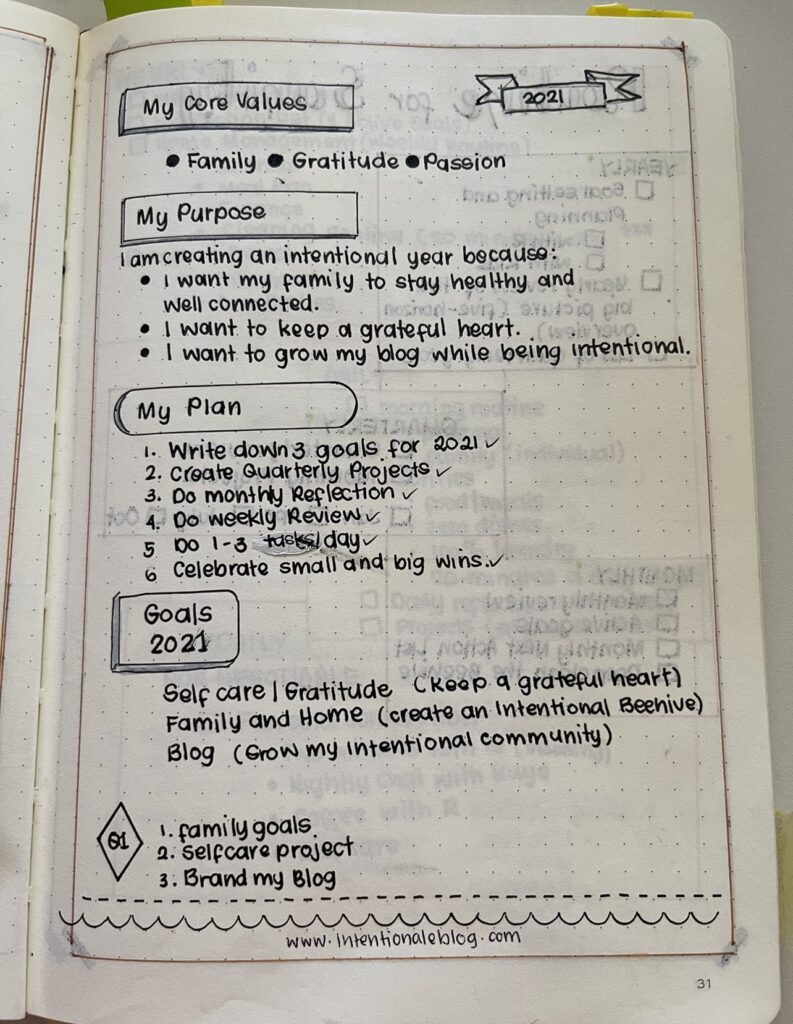 My Core Values
2021
• Family • Gratitude • Passion
My Purpose
I am creating an intentional year because:
• I want my family to stay healthy and
well connected.
• I want to keep a grateful heart.
• I want to grow my blog while being intentional.
My Plan
1. Write down 3 goals for 2021 ✓
2. Create Quarterly Projects ✓
3. Do monthly Reflection ✓
4. Do weekly Review ✓
5 Do 1-3 tasks/day ✓
6 Celebrate small and big wins. ✓
Goals
2021
Self care / Gratitude (keep a grateful heart)
Family and Home (create an Intentional Beehive)
Blog (Grow my intentional community)
Q1
1. family goals.
2. Selfcare project
3. Brand my Blog
www.intentionaleblog.com
31